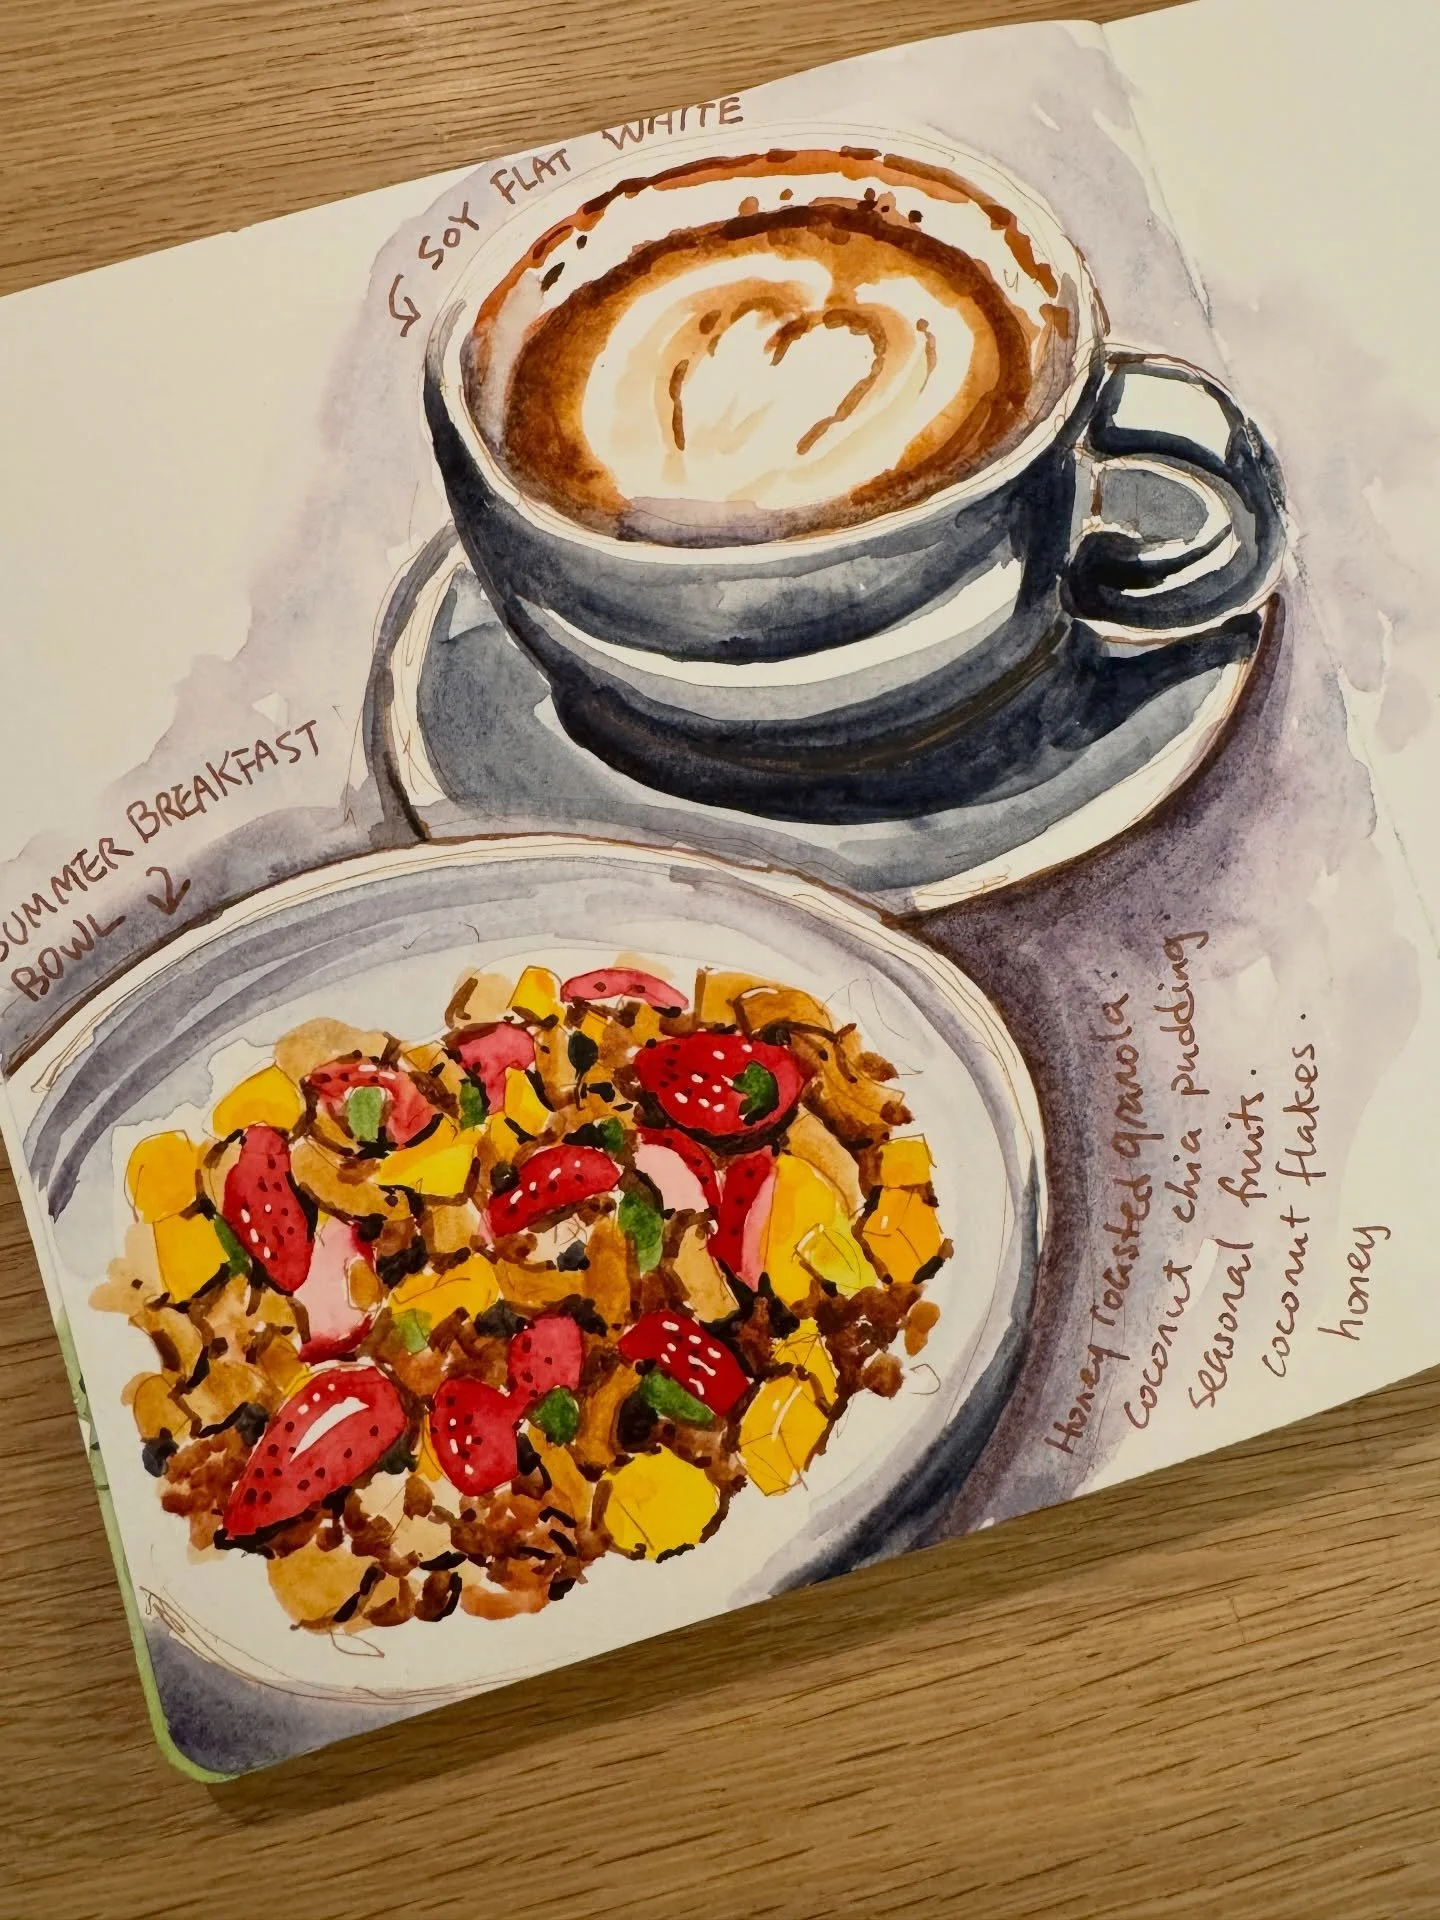 SOY FLAT WHITE
SUMMER BREAKFAST
BOWL
Honey Toasted granola.
Coconut chia pudding
seasonal fruits.
coconut flakes.
honey